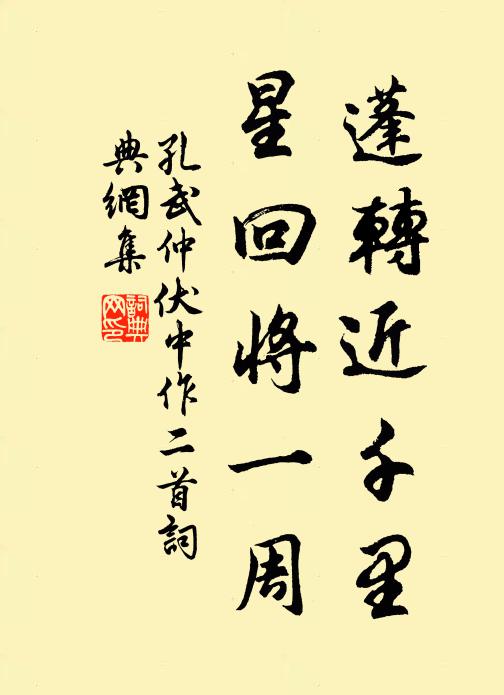 蓬轉近千里
星回將一周
孔武仲伏中作二首詞
典網集
詞典
网印